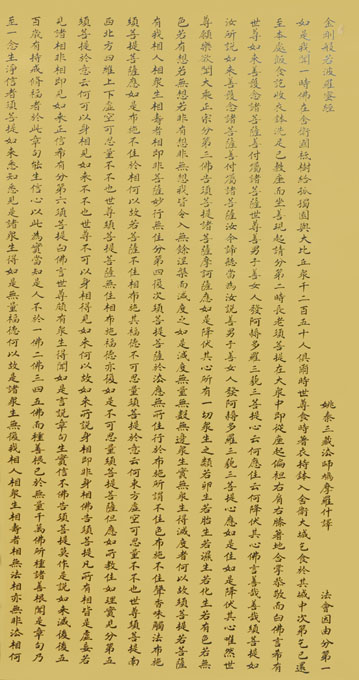 金剛般若波羅蜜經
姚秦三藏法師鳩摩羅什譯 法會因由分第一
如是我聞一時佛在舍衛國祇樹給孤獨園與大比丘眾千二百五十人俱爾時世尊食時著衣持鉢入舍衛大城乞食於其城中次第乞已還
至本處飯食訖收衣鉢洗足已敷座而坐善現起請分第二時長老須菩提在大眾中即從座起偏袒右肩右膝著地合掌恭敬而白佛言希有
世尊如來善護念諸菩薩善付囑諸菩薩世尊善男子善女人發阿耨多羅三藐三菩提心云何應住云何降伏其心佛言善哉善哉須菩提如
汝所說如來善護念諸菩薩善付囑諸菩薩汝今諦聽當為汝說善男子善女人發阿耨多羅三藐三菩提心應如是住如是降伏其心唯然世
尊願樂欲聞大乘正宗分第三佛告須菩提諸菩薩摩訶薩應如是降伏其心所有一切眾生之類若卵生若胎生若濕生若化生若有色若無
色若有想若無想若非有想非無想我皆令入無餘涅槃而滅度之如是滅度無量無數無邊眾生實無眾生得滅度者何以故須菩提若菩薩
有我相人相眾生相壽者相即非菩薩妙行無住分第四復次須菩提菩薩於法應無所住行於布施所謂不住色布施不住聲香味觸法布施
須菩提菩薩應如是布施不住於相何以故若菩薩不住相布施其福德不可思量須菩提於意云何東方虛空可思量不不也世尊須菩提南
西北方四維上下虛空可思量不不也世尊須菩提菩薩無住相布施福德亦復如是不可思量須菩提菩薩但應如所教住如理實見分第五
須菩提於意云何可以身相見如來不不也世尊不可以身相得見如來何以故如來所說身相即非身相佛告須菩提凡所有相皆是虛妄若
見諸相非相即見如來正信希有分第六須菩提白佛言世尊頗有眾生得聞如是言說章句生實信不佛告須菩提莫作是說如來滅後後五
百歲有持戒修福者於此章句能生信心以此為實當知是人不於一佛二佛三四五佛而種善根已於無量千萬佛所種諸善根聞是章句乃
至一念生淨信者須菩提如來悉知悉見是諸眾生得如是無量福德何以故是諸眾生無復我相人相眾生相壽者相無法相亦無非法相何